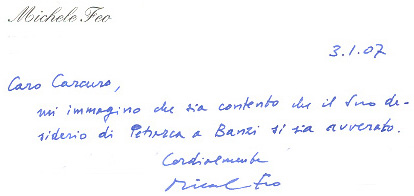 Michele Feo
3.1.07
Caro Carcuro,
mi immagino che sia contento che il Suo de-
siderio di Petrarca a Banzi si sia avverato.
Cordialmente
Michele Feo